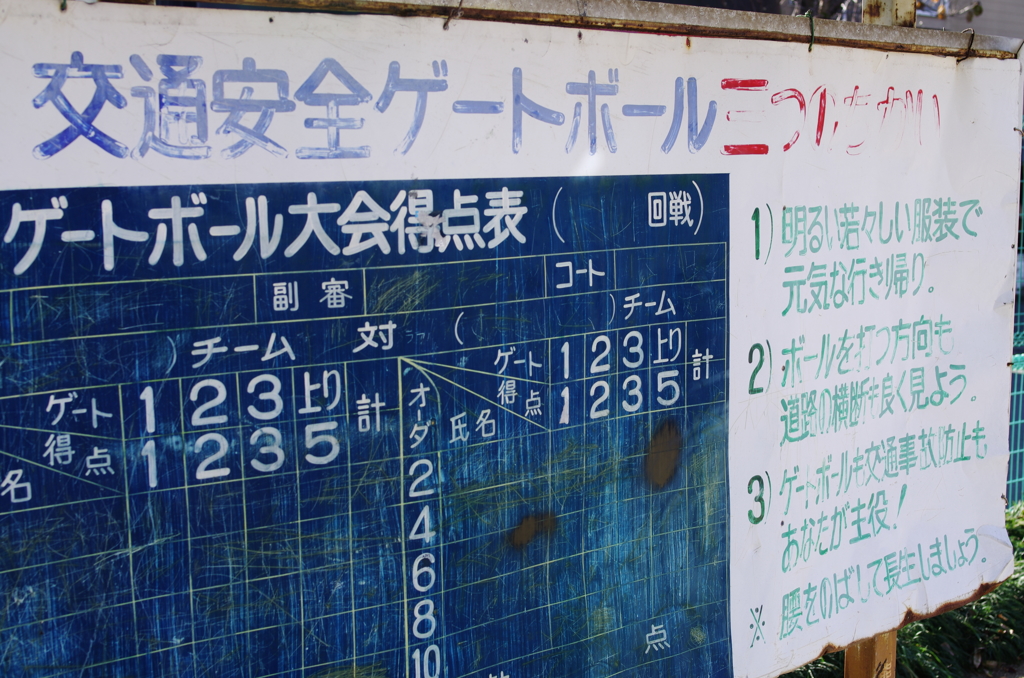 交通安全ゲートボール三つのたたかい
ゲートボール大会得点表 ( 回戦)
副審 コート
) チーム 対 ( ) チーム
ゲート 1 2 3 上り 計
得点 1 2 3 5
名
オーダ 氏名 ゲート 1 2 3 上り 計
得点 1 2 3 5
2
4
6
8
10
点
1) 明るい若々しい服装で
元気な行き帰り。
2) ボールを打つ方向も
道路の横断も良く見よう。
3) ゲートボールも交通事故防止も
あなたが主役!
※ 腰をのばして長生しましょう。